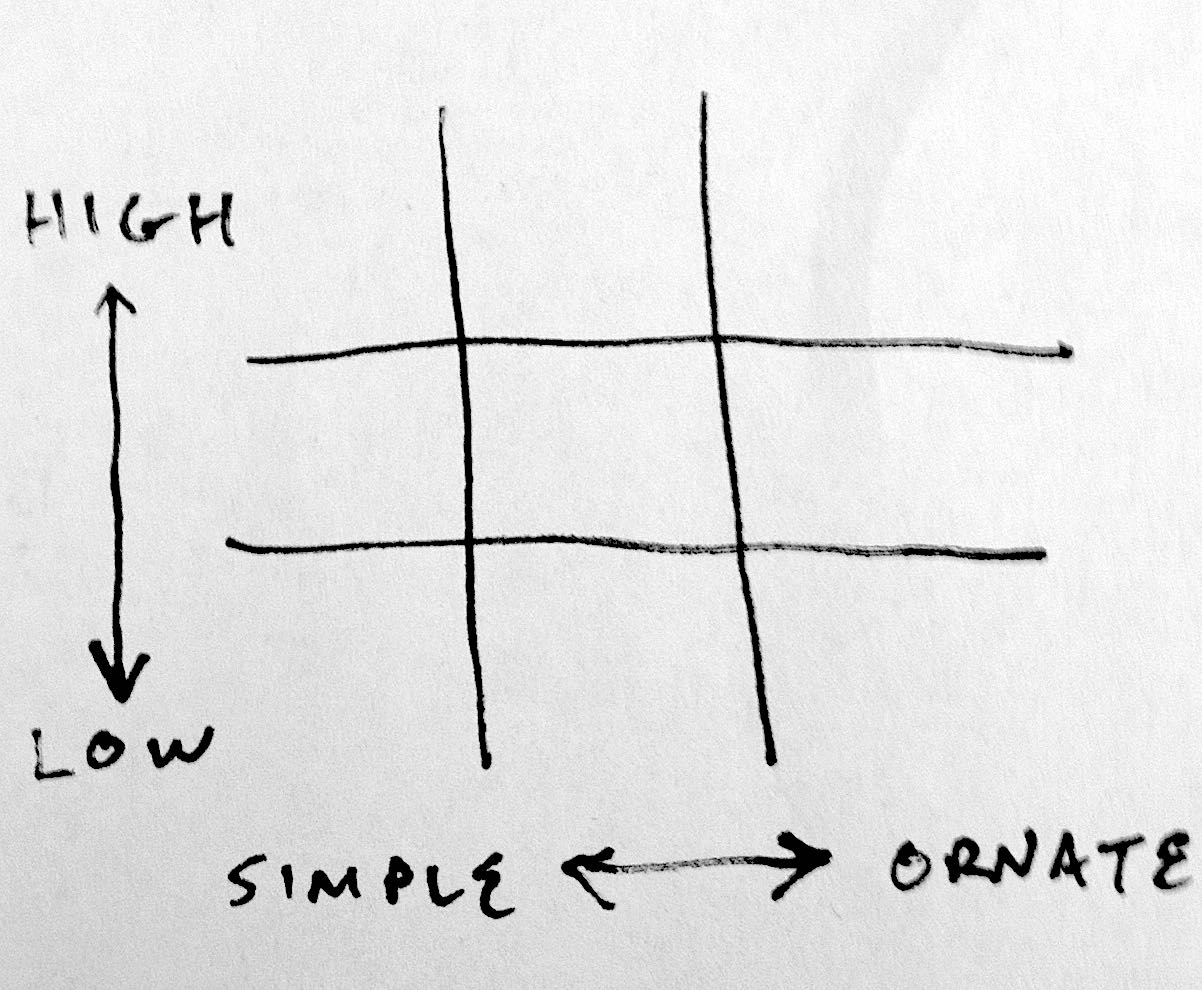 HIGH
LOW
SIMPLE ORNATE